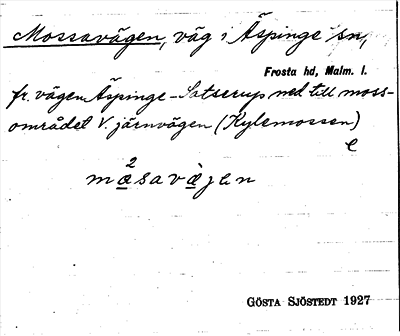 Mossavägen, väg i Äspinge sn,
Frosta hd, Malm. l.
fr. vägen Äspinge-Satserup ned till moss-
området V. järnvägen (Kylemossen)
e
2
mɑsavæ̀jen
GÖSTA SJÖSTEDT 1927